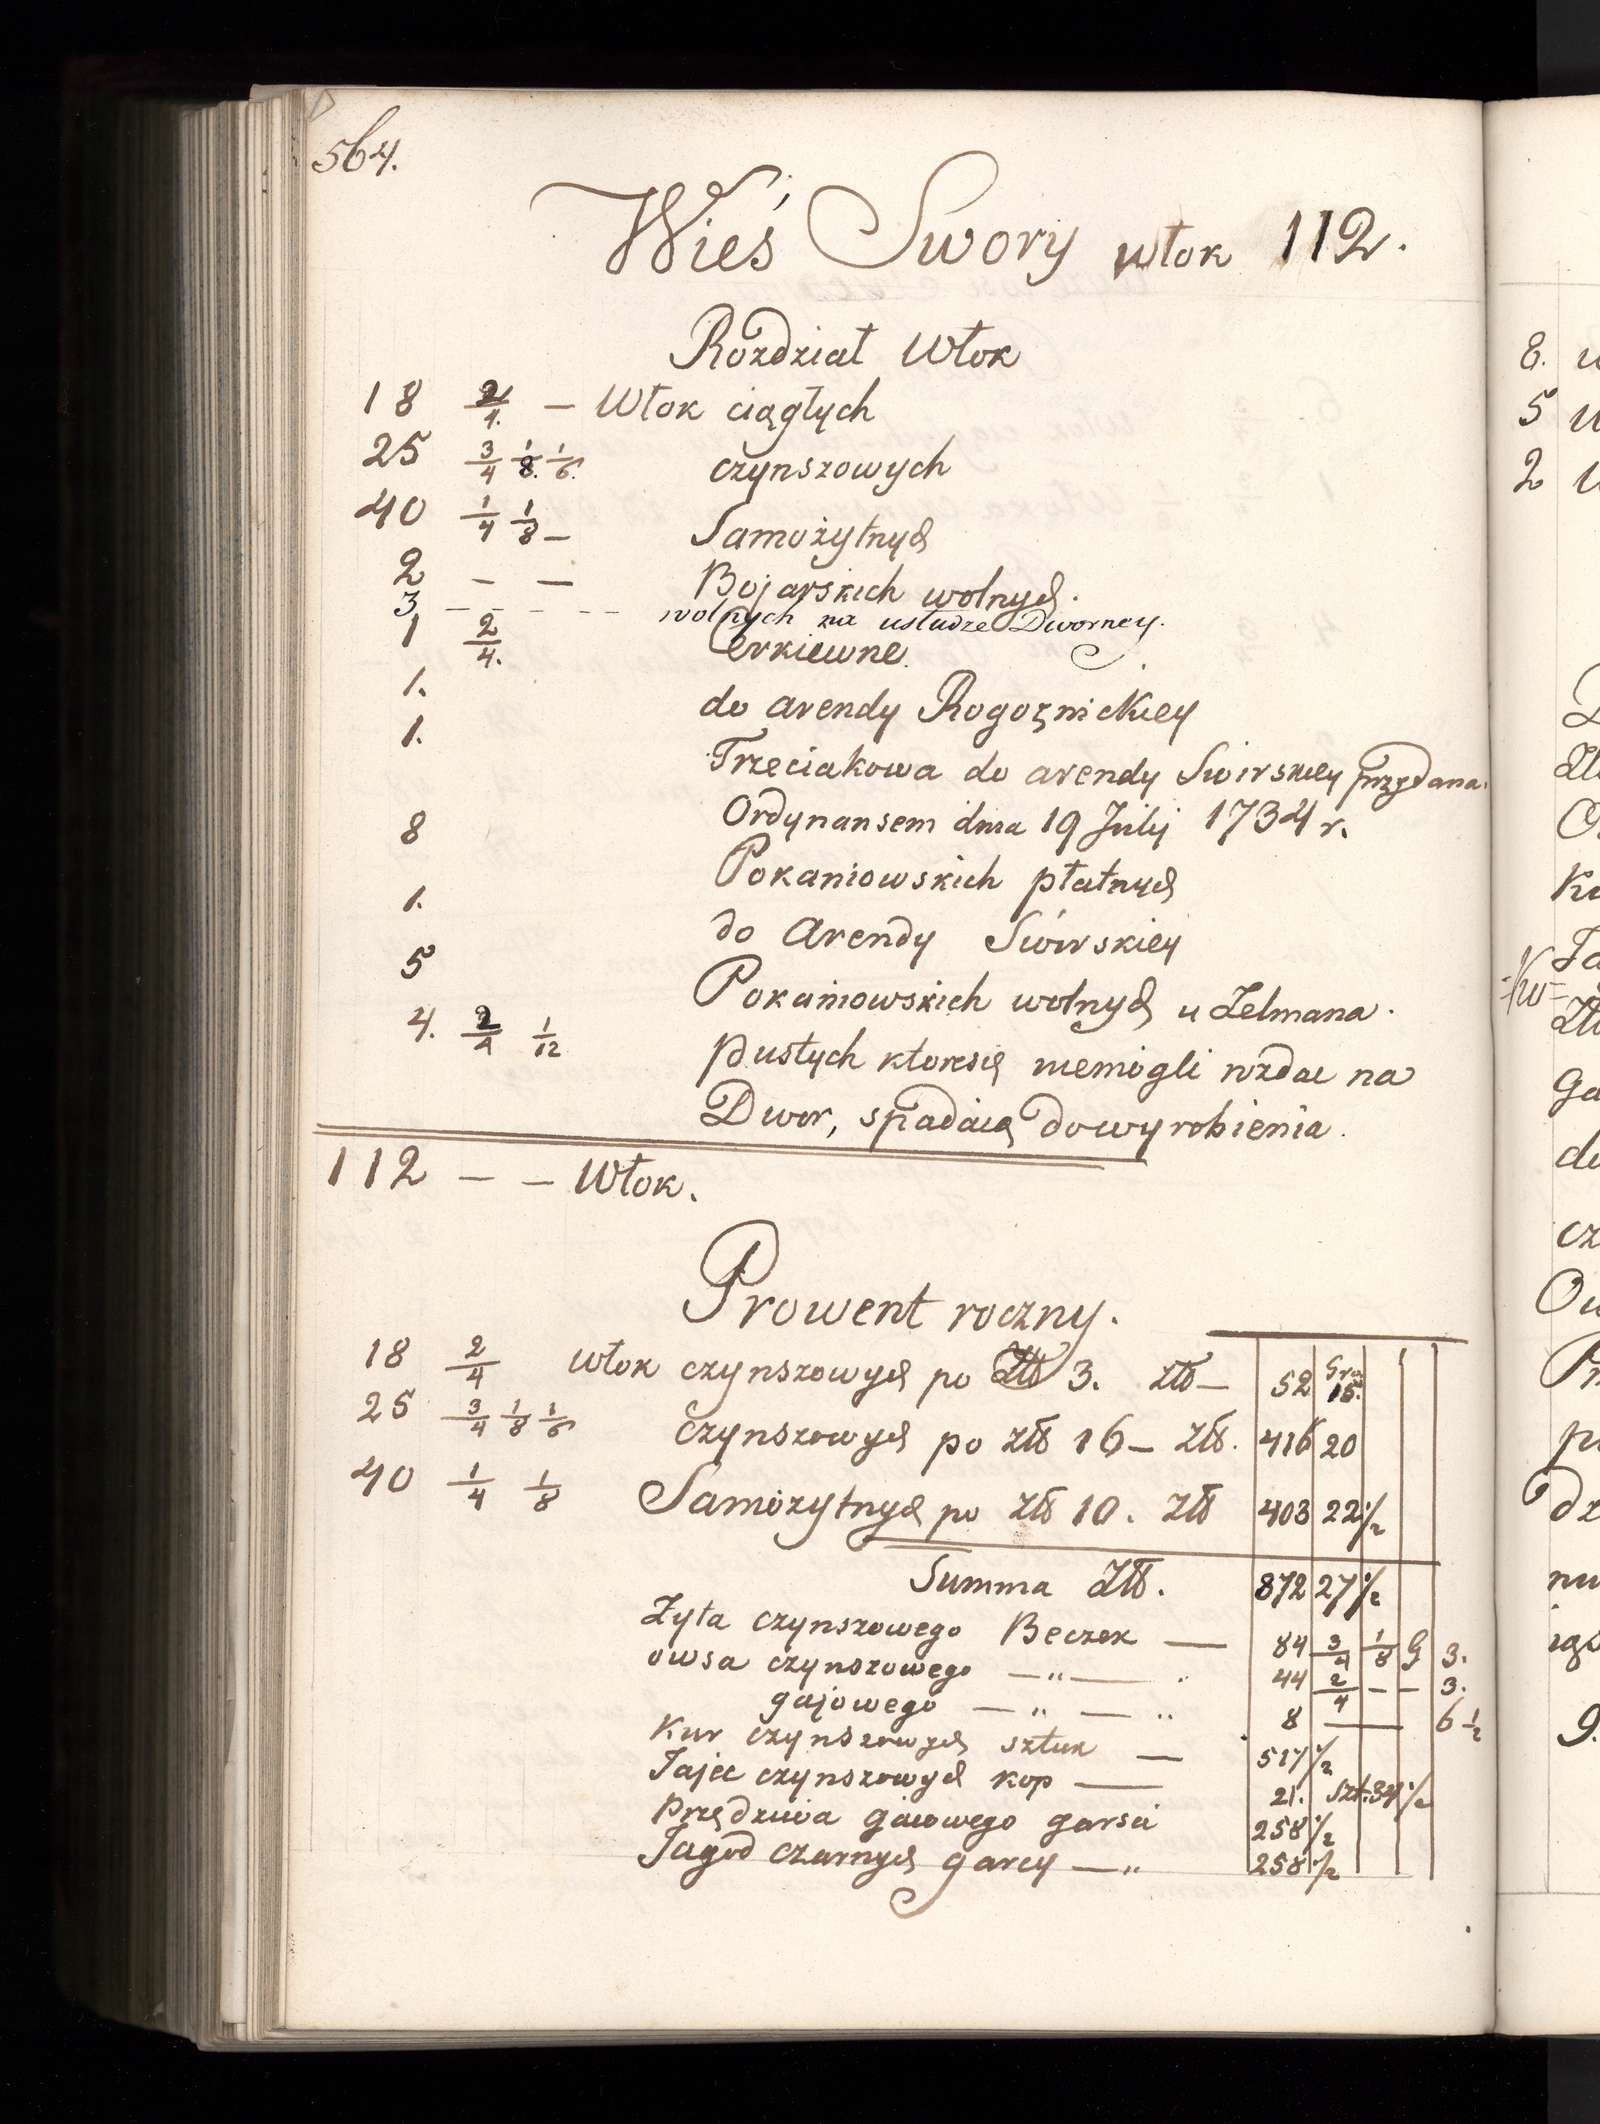 564.
Wieś Swory włok 112.
Rozdział Włok
18 2/4. — Włok ciągłych
25 3/4 1/8. 1/6. czynszowych
40 1/4 1/8 — Samożytnych
2 — — Bojarskich wolnych.
3 - - - - - wolnych na usłudze Dworney.
1 2/4. Cerkiewne.
1. do arendy Rogoznickiey
1. Trzeciakowa do arendy Swirskiey przydana.
Ordynansem dnia 19 Julij 1734 r.
8 Pokaniowskich płatnych
1. do Arendy Swirskiey
5 Pokaniowskich wolnych u Zelmana.
4. 2/4 1/12 pustych ktoresię niemogli rozdać na
Dwor, spadaią dowyrobienia.
112 — — Włok.
Prowent roczny.
18 2/4 włok czynszowych po Złł 3. złł — 52 Gro 15.
25 3/4 1/8 1/6 czynszowych po złł 16 — złł. 416 20
40 1/4 1/8 Samożytnych po złł 10. złł 403 22 1/2
Summa Złł. 872 27 1/2
Żyta czynszowego Beczek — 84 3/4 1/8 G 3.
owsa czynszowego — „ — „ 44 2/4 — — 3.
gajowego — „ — „ 8 — 6 1/2
Kur czynszowych sztuk — 517 1/2
Jajec czynszowych kop — 21. Szt. 34 1/2
Przędziwa gaiowego garsci 258 1/2
Jagod czarnych garcy — „ 258 1/2
8.
5
2